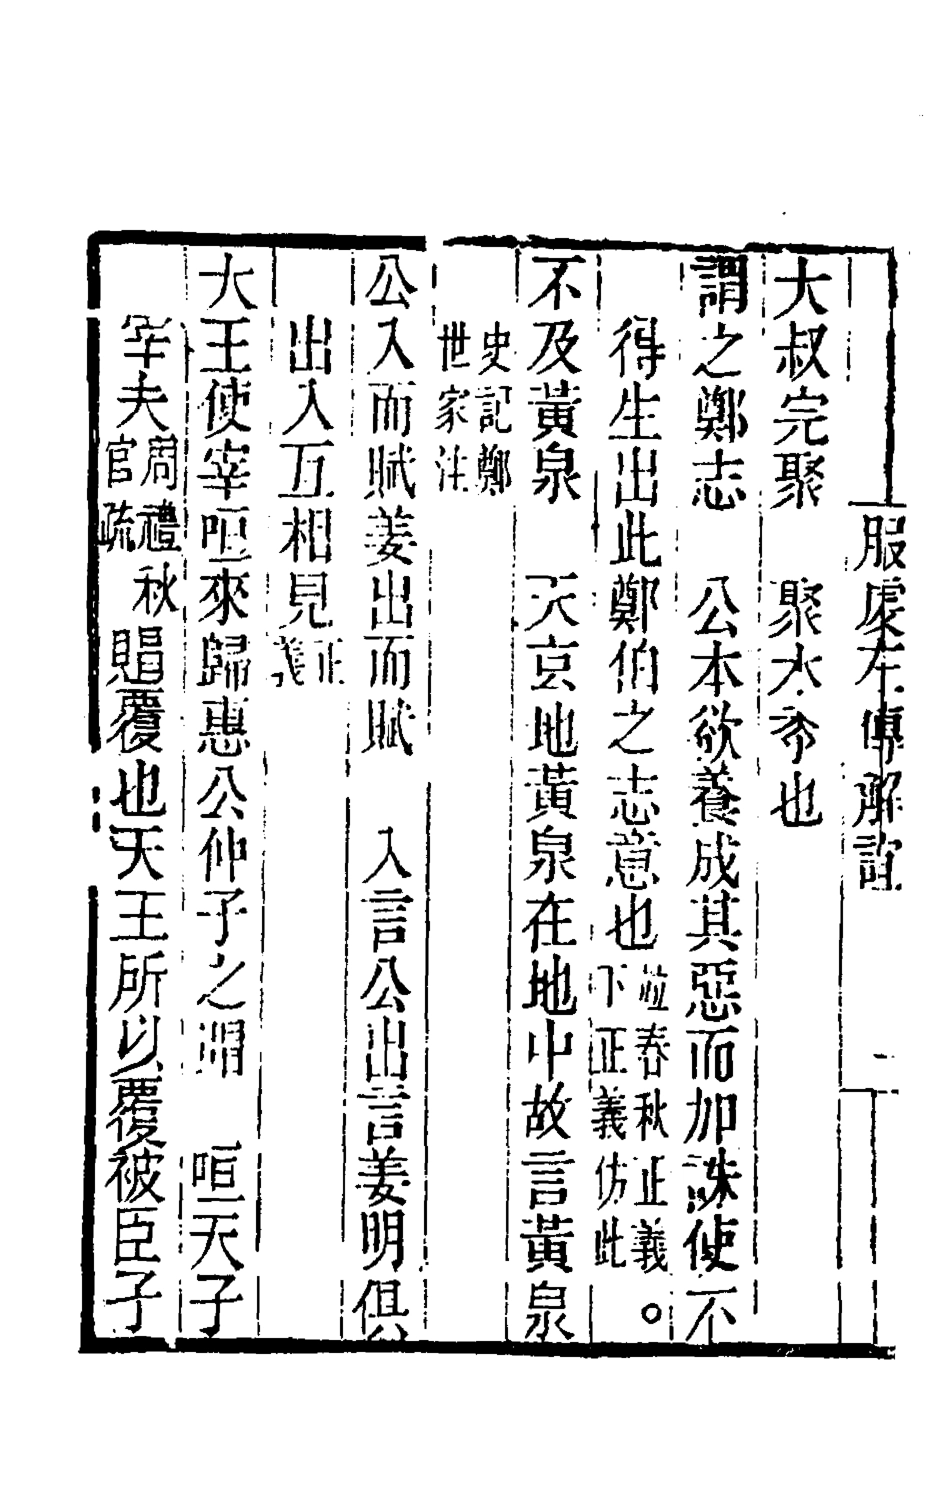 服虔左傳解誼
一
大叔完聚　聚禾黍也
謂之鄭志　公本欲養成其惡而加誅使不
得生出此鄭伯之志意也
竝春秋正義○
下正義仿此
不及黃泉　天玄地黃泉在地中故言黃泉
史記鄭
世家注
公入而賦姜出而賦　入言公出言姜明俱
出入互相見
正
義
天王使宰咺來歸惠公仲子之賵　咺天子
宰夫
周禮
官疏
秋
賵覆也天王所以覆被臣子